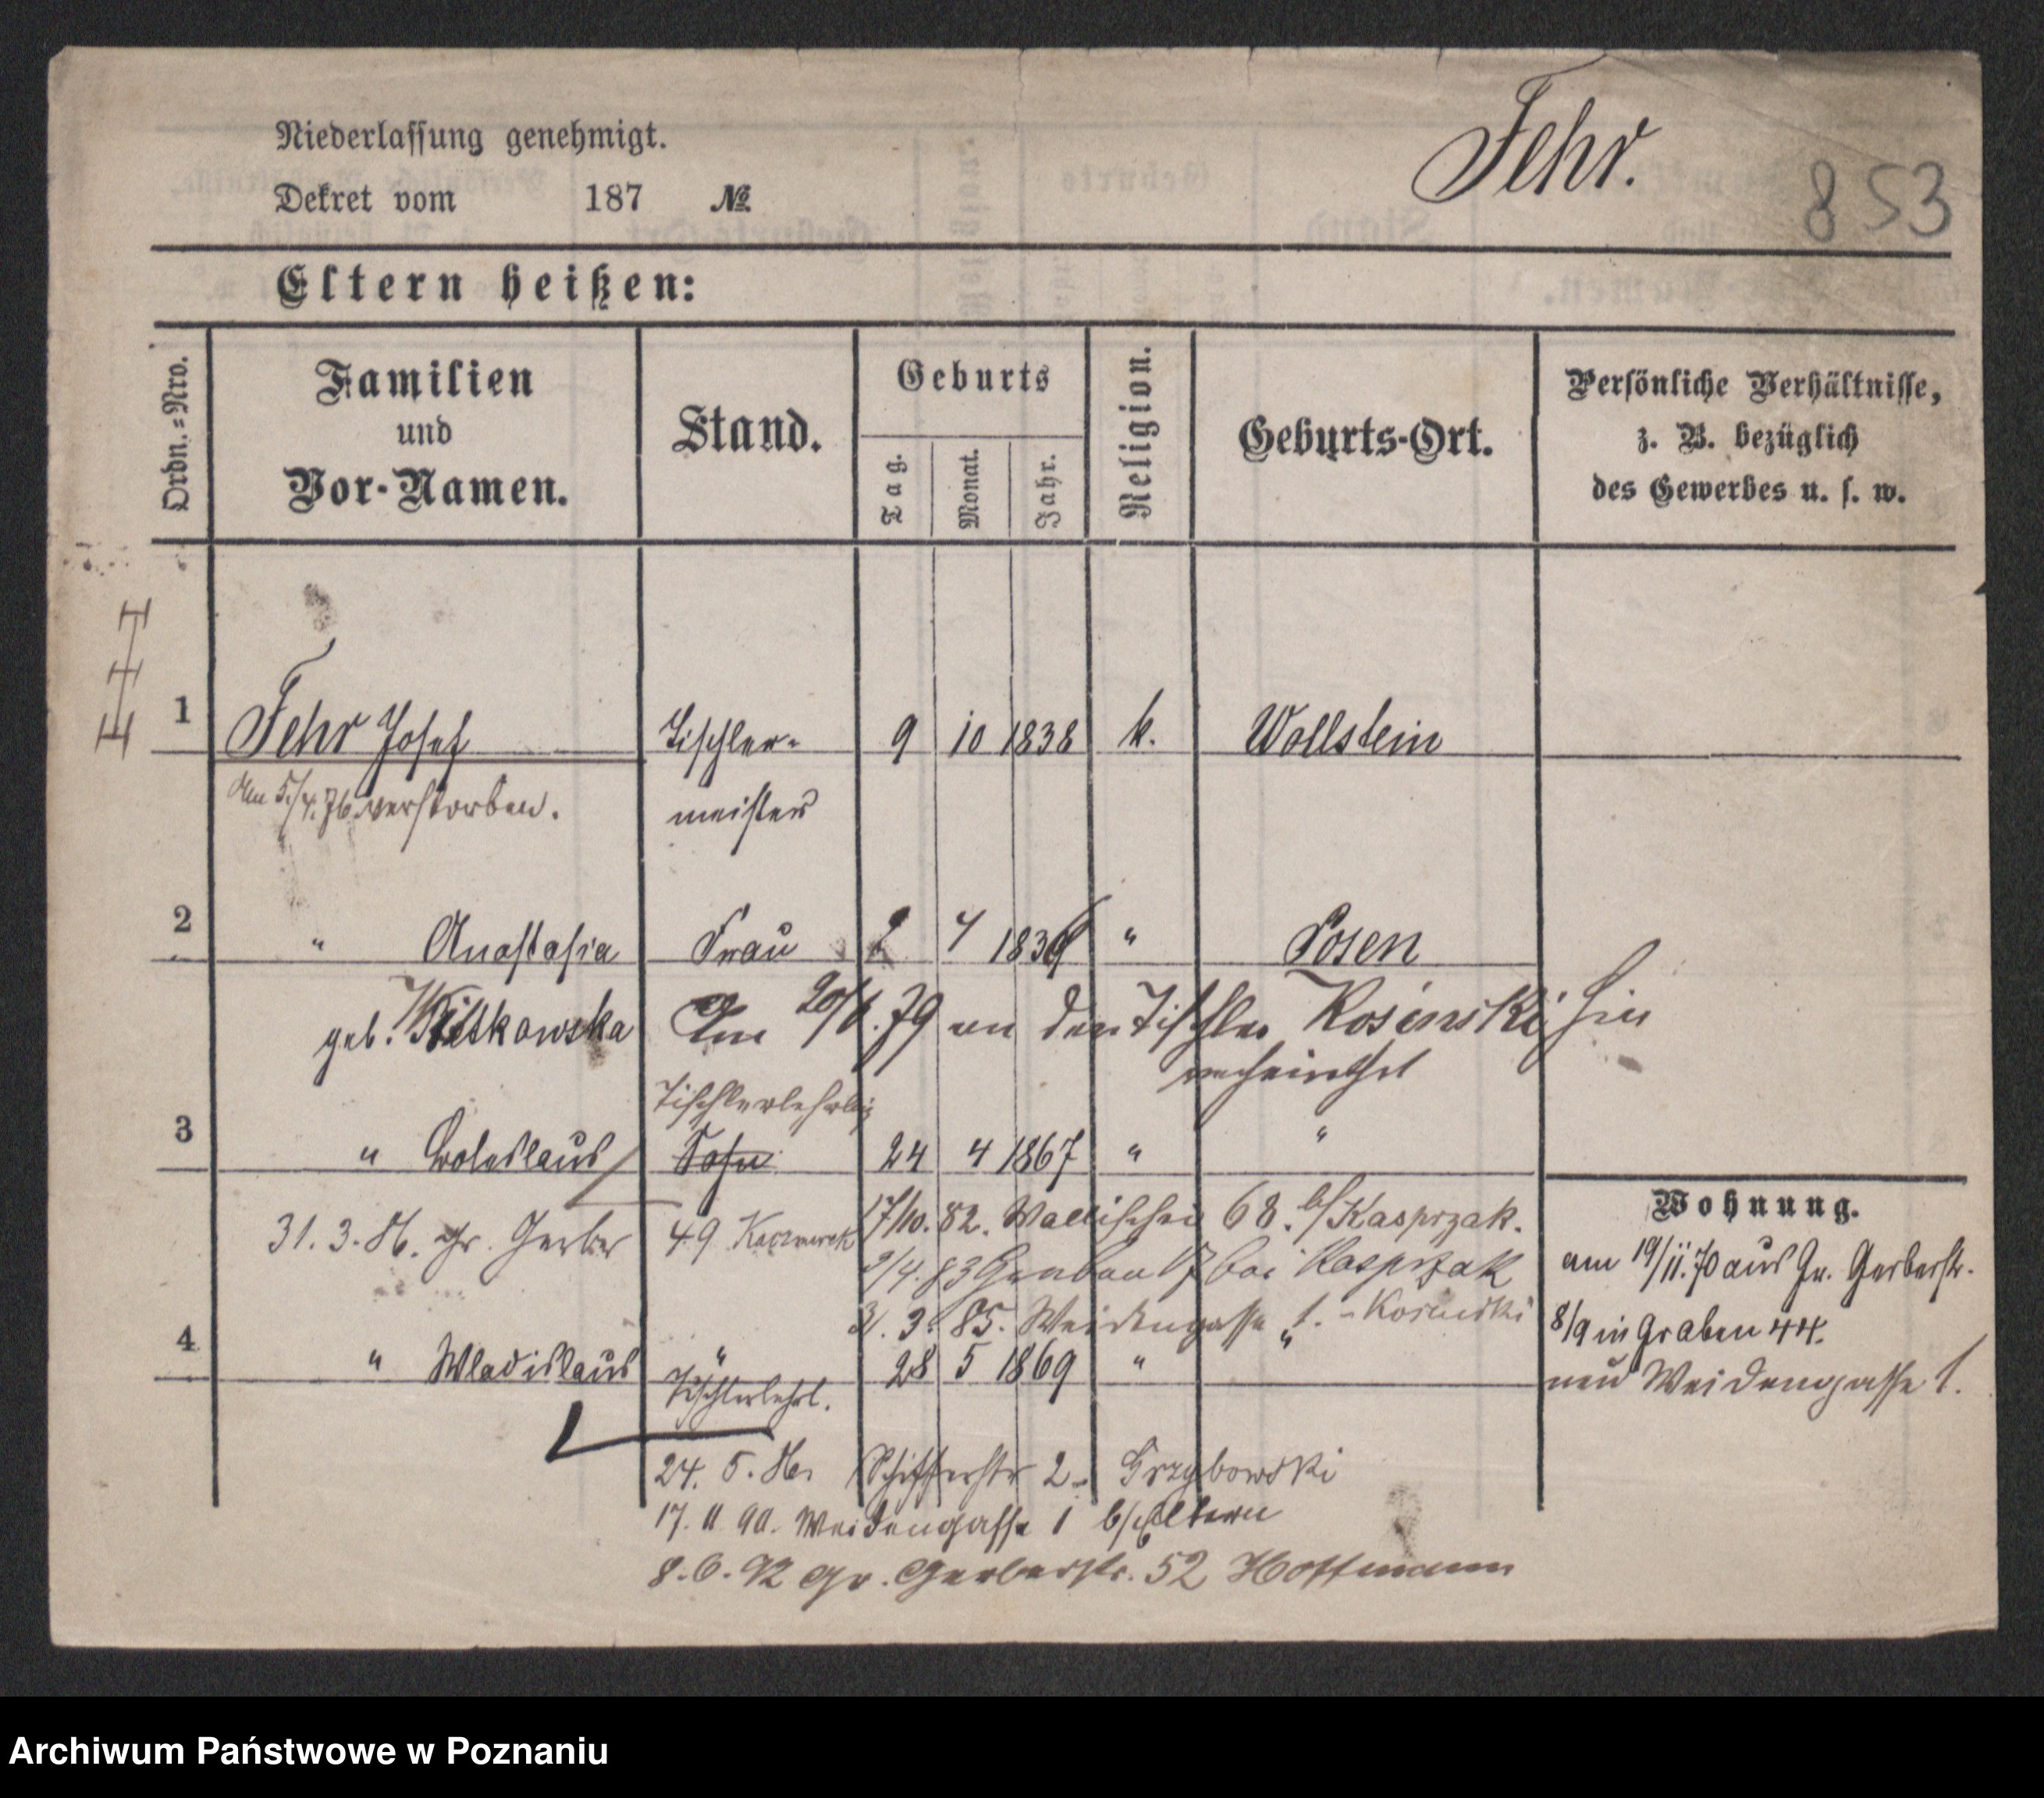 Niederlassung genehmigt.
Fehr.
853
Dekret vom 187 №
Eltern heißen:
Ordn.-Nro.
Familien und Vor-Namen.
Stand.
Geburts
Tag.
Monat.
Jahr.
Religion.
Geburts-Ort.
Persönliche Verhältnisse, z. B. bezüglich des Gewerbes u. s. w.
1 Fehr Josef Tischler- 9 10 1838 k. Wollstein
Am 5/4.76 verstorben. meister
2 " Anastasia Frau 2 4 " Posen
geb. Am 20/ .79 an den Tischler Kosinski hier
verheirathet
Tischlerlehrlg
3 " Boleslaus Sohn 24 4 1867 " "
17/10. 82. Wallischei 68. b/Kasprzak.
31. 3. 86. Gr. Gerber 49 Kaczmarek
3/4. 83 Graben 17 bei Kasprzak
3. 85. Weidengasse 1. - Kosinski
4 " Wladislaus " 28 5 1869 " "
Tischlerlehrl.
Wohnung.
am 19/11.70 aus Gr. Gerberstr.
8/9 in Graben 44.
neu Weidengasse 1.
24. 5. 86. Schifferstr 2 - Grzybowski
17. 11 90. Weidengasse 1 b/Eltern
8. 6. 92 Gr. Gerberstr. 52 Hoffmann
Archiwum Państwowe w Poznaniu